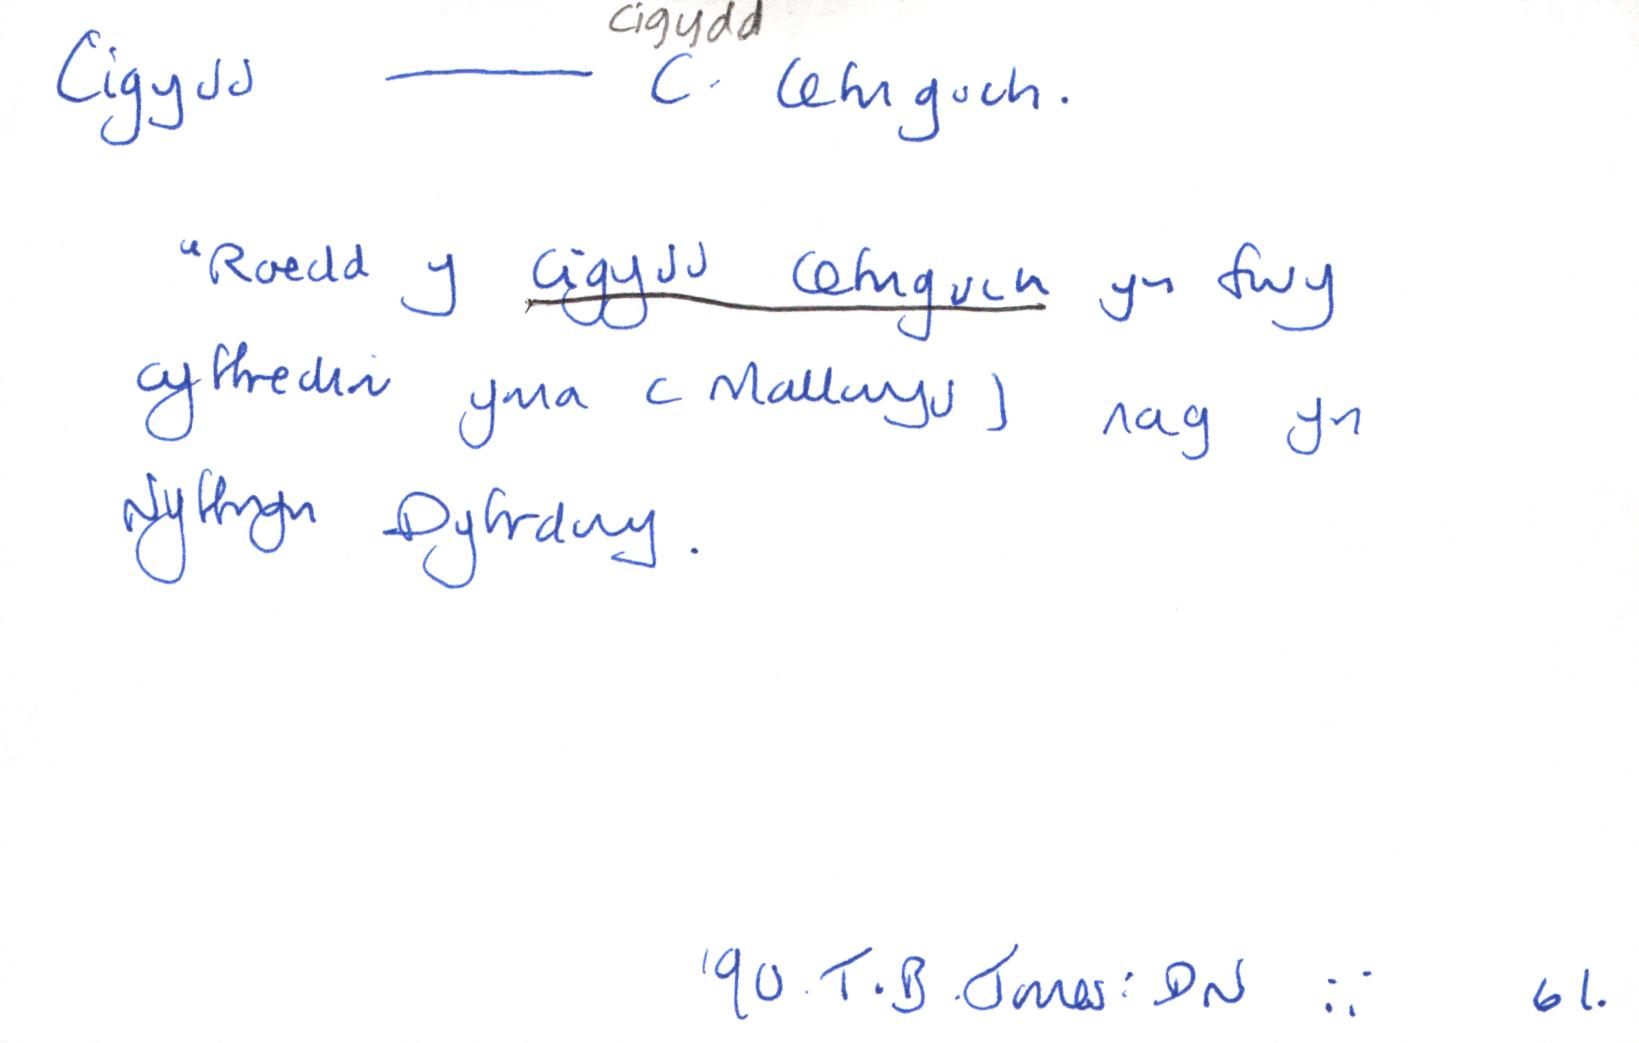 cigydd
Cigydd — C. Cefngoch.
"Roedd y cigydd cefngoch yn fwy
cyffredin yma (Mallwyd) nag yn
Nyffryn Dyfrdwy.
'90 T.B. Jones: DN :: 61.